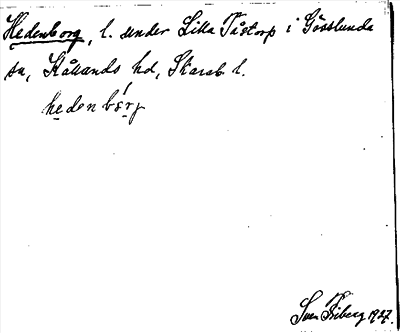 Hedenborg, l. under Lilla Tåstorp i Gösslunda
sn, Kållands hd, Skarab. l.
hedenbórg
Sven Friberg 1927.